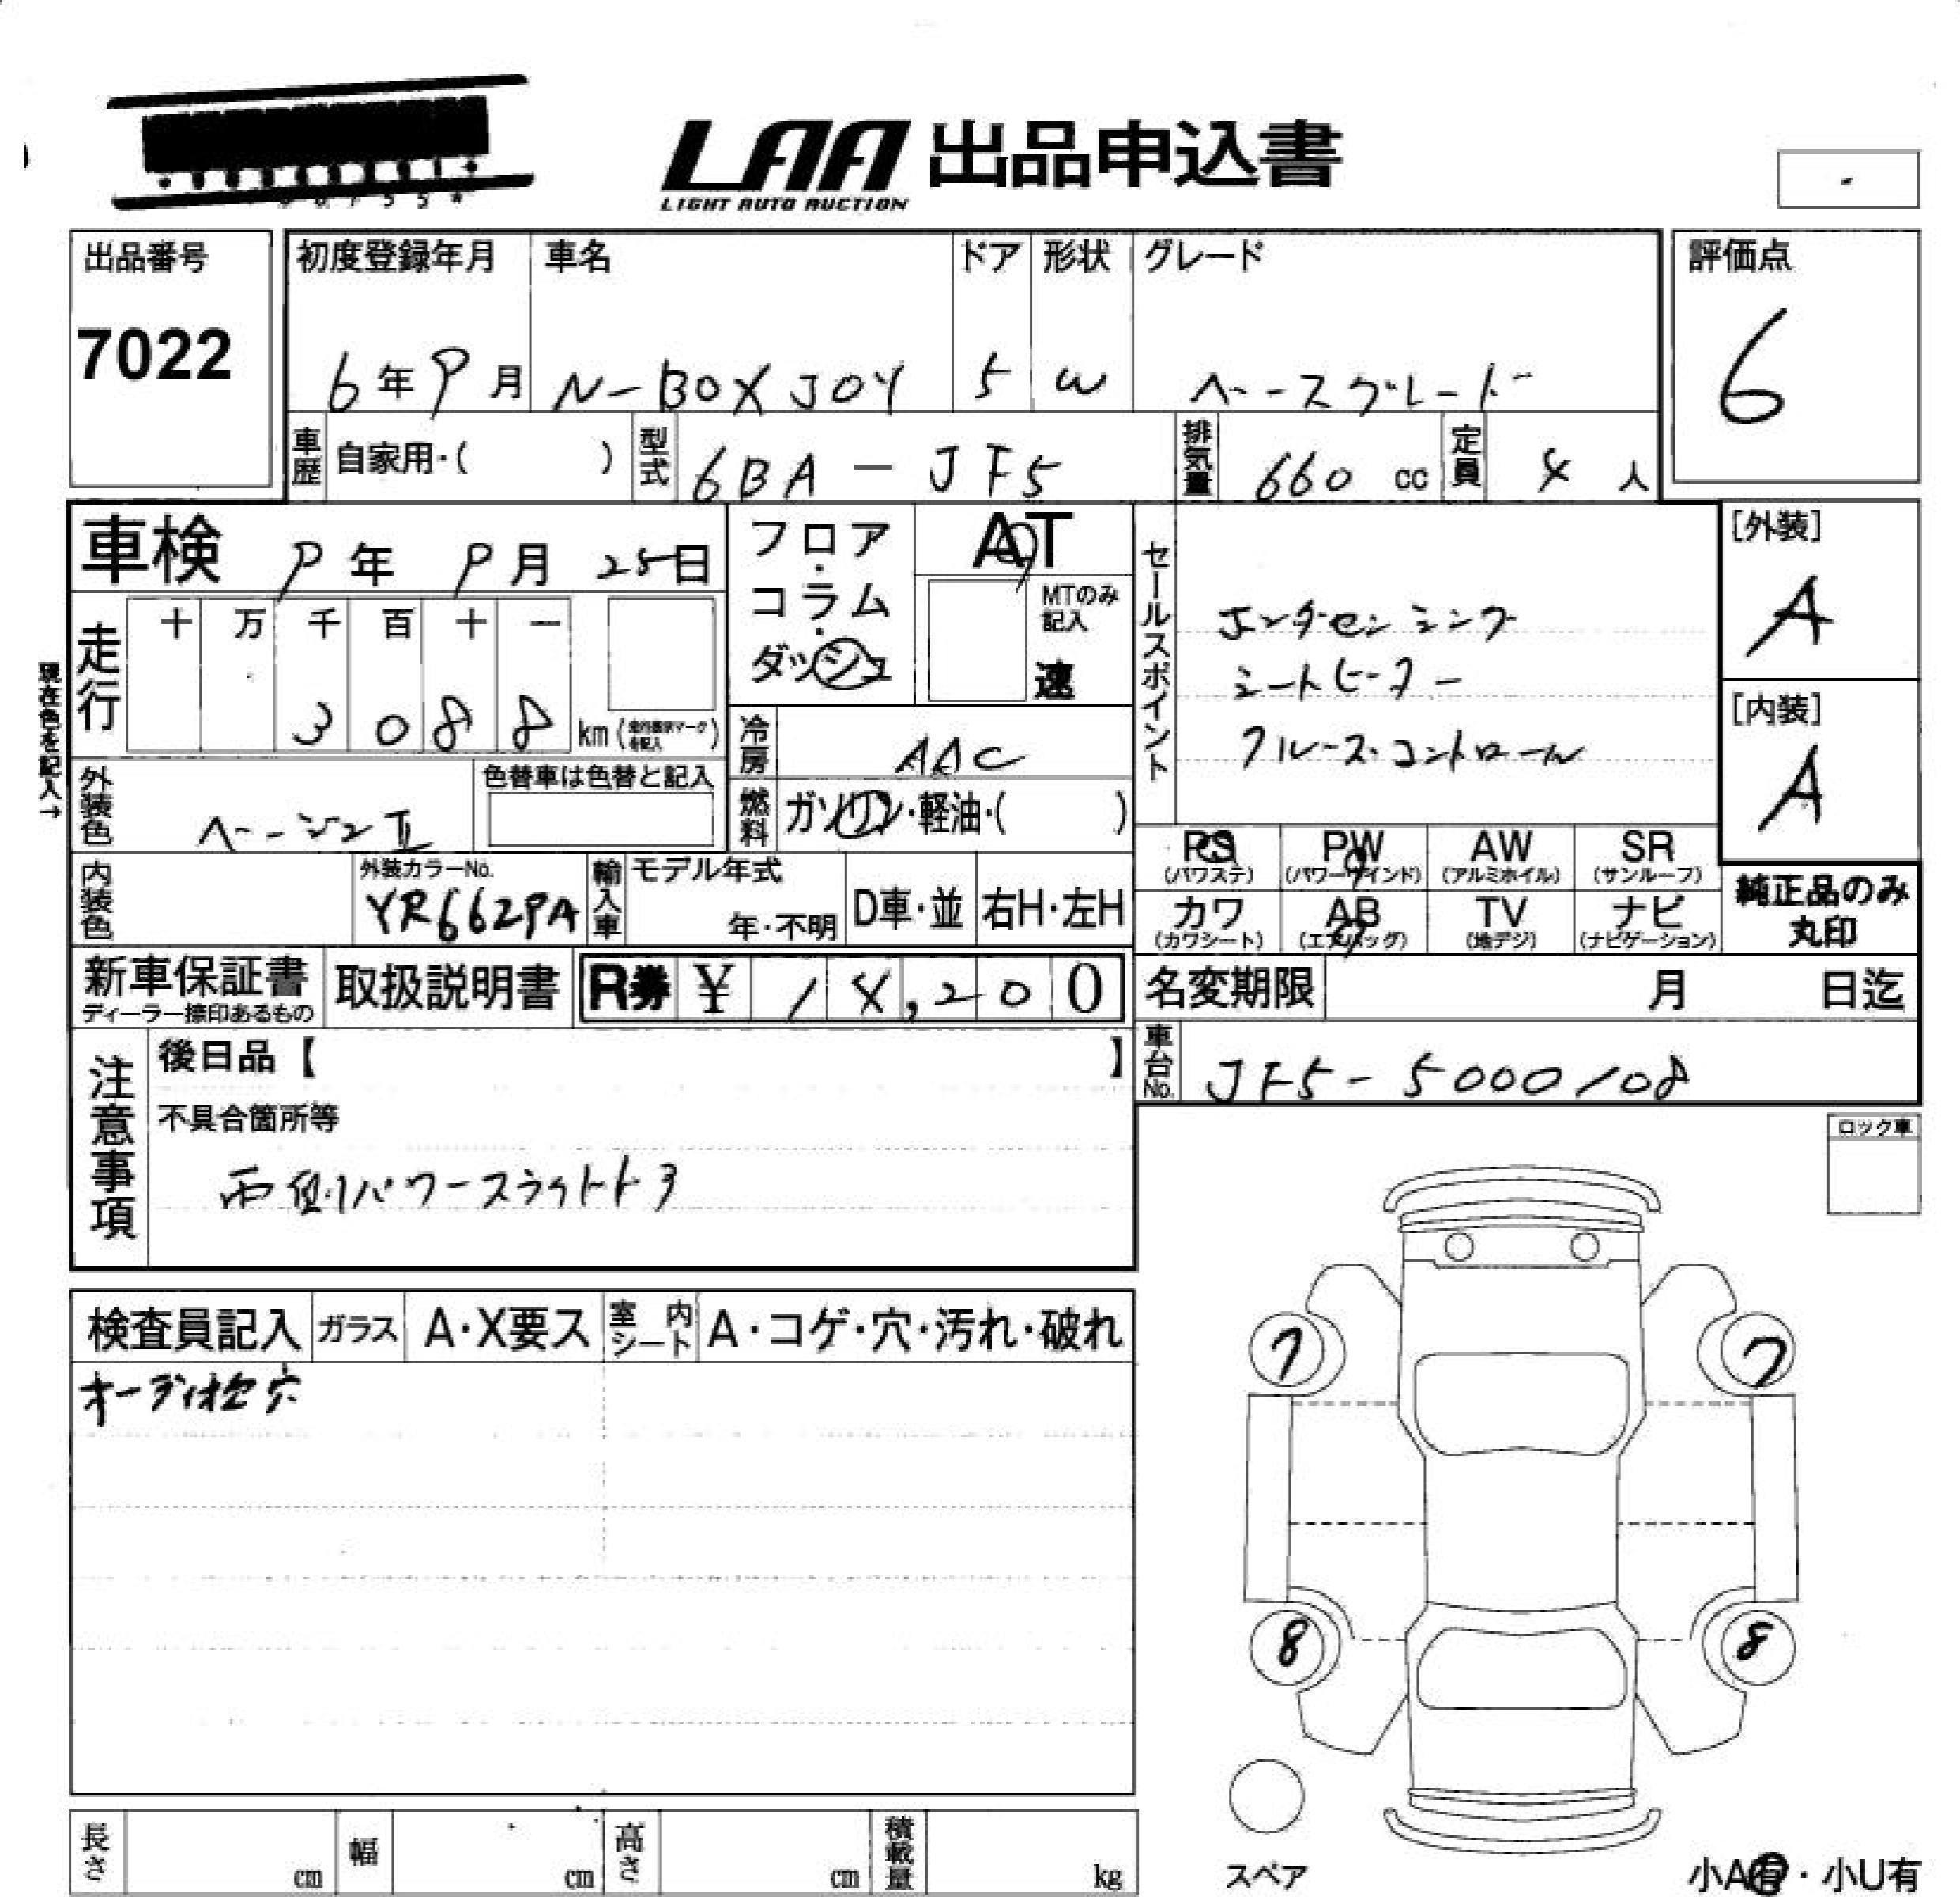 LAA 出品申込書
LIGHT AUTO AUCTION
-
出品番号
7022
初度登録年月
6年9月
車名
N-BOX JOY
ドア
5
形状
W
グレード
ベースグレード
評価点
6
車歴 自家用・( )
型式 6BA-JF5
排気量 660 cc
定員 4 人
車検 9年9月25日
フロア・コラム・ダッシュ
AT
MTのみ記入
速
セールスポイント
シートヒーター
クルーズコントロール
[外装]
A
[内装]
A
現在色を記入→
走行 十 万 千 百 十 一
3088 km
冷房 AAC
燃料 ガソリン・軽油・( )
外装色 ベージュII
色替車は色替と記入
内装色
外装カラーNo.
YR6629A
輸入車 モデル年式
年・不明
D車・並
右H・左H
PS (パワステ)
PW (パワーウインド)
AW (アルミホイル)
SR (サンルーフ)
カワ (カワシート)
AB (エアバッグ)
TV (地デジ)
ナビ (ナビゲーション)
純正品のみ丸印
新車保証書
ディーラー捺印あるもの
取扱説明書
R券 ¥ 14,200
名変期限 月 日迄
車台No. JF5-5000108
注意事項
後日品【 】
不具合箇所等
両側パワースライドドア
ロック車
検査員記入
ガラス A・X要ス
室内シート A・コゲ・穴・汚れ・破れ
7
7
8
8
スペア
長さ cm
幅 cm
高さ cm
積載量 kg
小A有・小U有